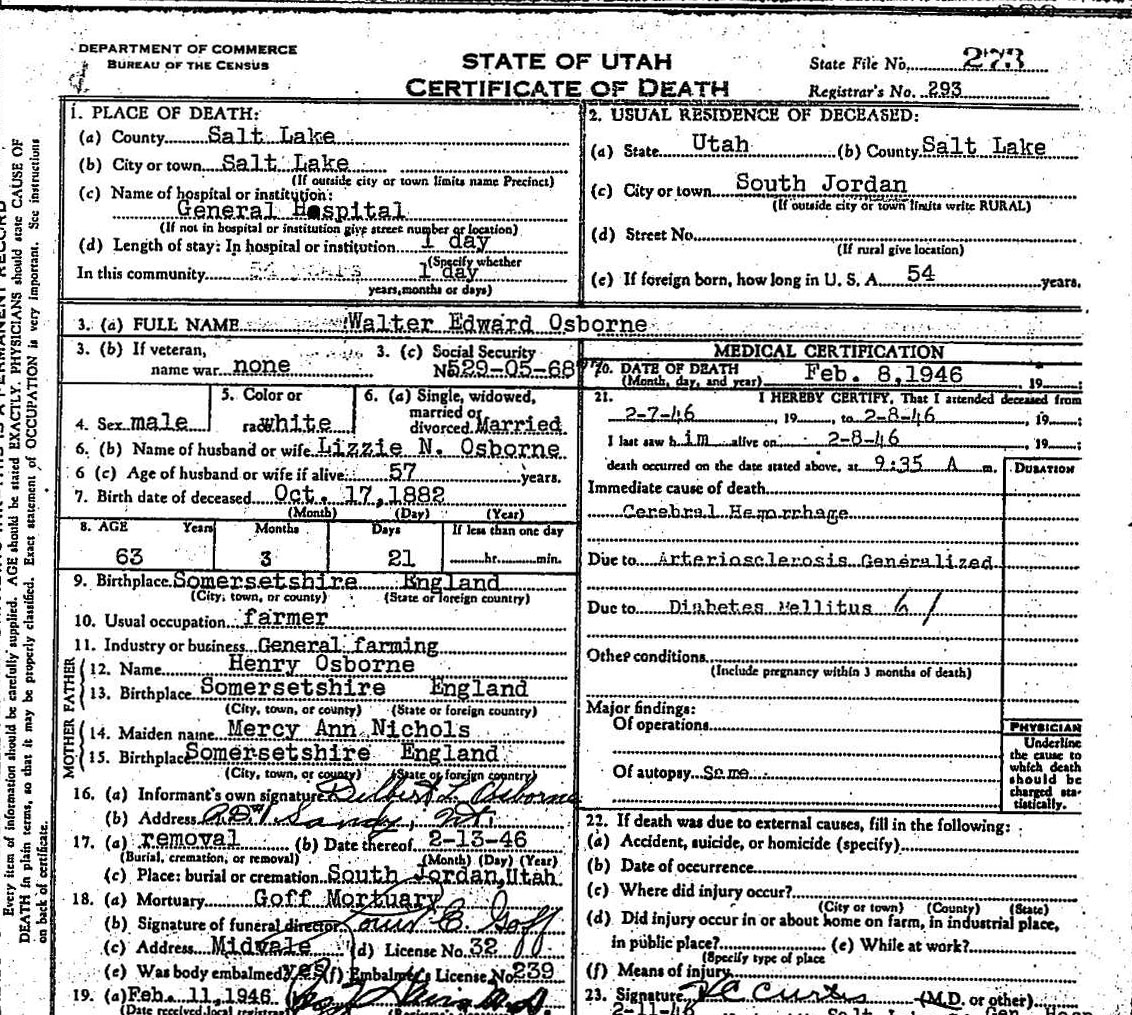 DEPARTMENT OF COMMERCE
BUREAU OF THE CENSUS
STATE OF UTAH
CERTIFICATE OF DEATH
State File No. 273
Registrar's No. 293
1. PLACE OF DEATH:
(a) County Salt Lake
(b) City or town Salt Lake
(If outside city or town limits name Precinct)
(c) Name of hospital or institution:
General Hospital
(If not in hospital or institution give street number or location)
(d) Length of stay: In hospital or institution 1 day
(Specify whether
In this community 1 day
years, months or days)
2. USUAL RESIDENCE OF DECEASED:
(a) State Utah (b) County Salt Lake
(c) City or town South Jordan
(If outside city or town limits write RURAL)
(d) Street No.
(If rural give location)
(e) If foreign born, how long in U. S. A. 54 years.
3. (a) FULL NAME Walter Edward Osborne
3. (b) If veteran,
name war none
3. (c) Social Security
No. 529-05-68
4. Sex male
5. Color or
race white
6. (a) Single, widowed,
married or
divorced Married
6. (b) Name of husband or wife Lizzie N. Osborne
6 (c) Age of husband or wife if alive 57 years.
7. Birth date of deceased Oct. 17, 1882
(Month) (Day) (Year)
8. AGE Years Months Days If less than one day
63 3 21 hr. min.
9. Birthplace Somersetshire England
(City, town, or county) (State or foreign country)
10. Usual occupation farmer
11. Industry or business General farming
FATHER
12. Name Henry Osborne
13. Birthplace Somersetshire England
(City, town, or county) (State or foreign country)
MOTHER
14. Maiden name Mercy Ann Nichols
15. Birthplace Somersetshire England
(City, town, or county) (State or foreign country)
16. (a) Informant's own signature Delbert L. Osborne
(b) Address Sandy, Ut.
17. (a) removal (b) Date thereof 2-13-46
(Burial, cremation, or removal) (Month) (Day) (Year)
(c) Place: burial or cremation South Jordan, Utah
18. (a) Mortuary Goff Mortuary
(b) Signature of funeral director Goff
(c) Address Midvale (d) License No. 32
(e) Was body embalmed? yes (f) Embalmer's License No. 239
19. (a) Feb. 11, 1946
(Date received local registrar)
MEDICAL CERTIFICATION
20. DATE OF DEATH Feb. 8, 1946
(Month, day, and year) , 19 ;
21. I HEREBY CERTIFY, That I attended deceased from
2-7-46 , 19 , to 2-8-46 , 19 ;
I last saw him alive on 2-8-46 , 19 ;
death occurred on the date stated above, at 9:35 A m.
DURATION
Immediate cause of death
Cerebral Hemorrhage
Due to Arteriosclerosis Generalized
Due to Diabetes Mellitus
Other conditions
(Include pregnancy within 3 months of death)
Major findings:
Of operations
Of autopsy Same
PHYSICIAN
Underline
the cause to
which death
should be
charged sta-
tistically.
22. If death was due to external causes, fill in the following:
(a) Accident, suicide, or homicide (specify)
(b) Date of occurrence
(c) Where did injury occur?
(City or town) (County) (State)
(d) Did injury occur in or about home on farm, in industrial place,
in public place? (e) While at work?
(Specify type of place
(f) Means of injury
23. Signature Curtis (M.D. or other)
2-11-46
Every item of information should be carefully supplied. AGE should be stated EXACTLY. PHYSICIANS should state CAUSE OF
DEATH in plain terms, so that it may be properly classified. Exact statement of OCCUPATION is very important. See instructions
on back of certificate.